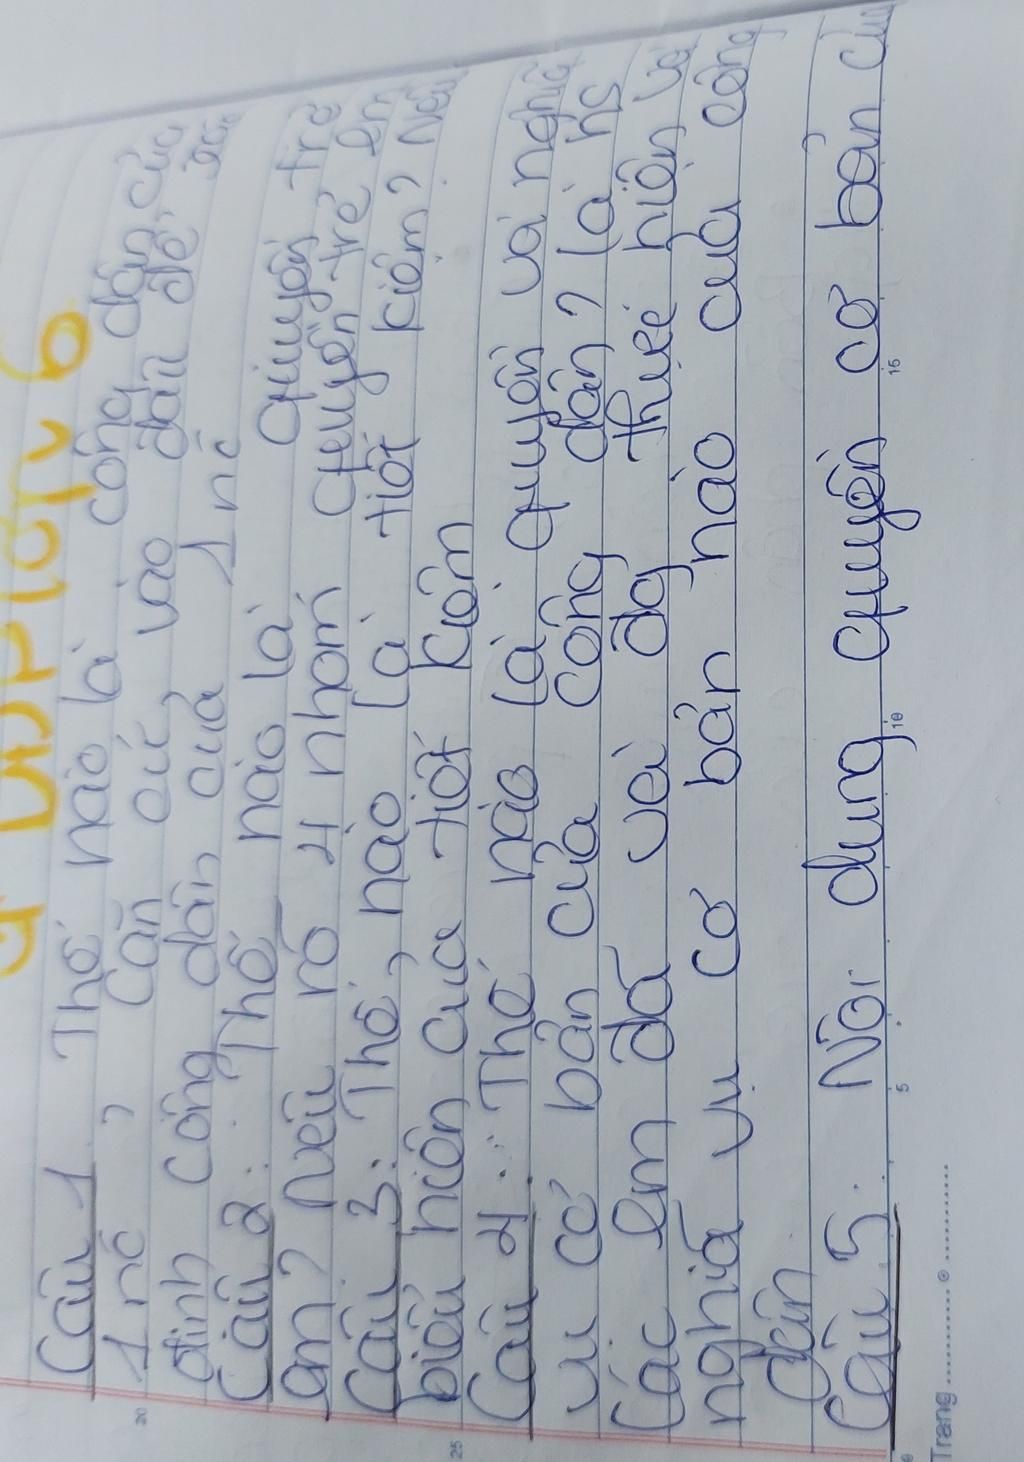 Câu 1 Thế nào là công dân của
1 nc ? Căn cứ vào đâu để xác
định công dân của 1 nc
Câu 2: Thế nào là quyền trẻ
em? Nêu rõ 4 nhóm quyền trẻ em
Câu 3: Thế nào là tiết kiệm? Nêu
biểu hiện của tiết kiệm
Câu 4: Thế nào là quyền và nghĩa
vụ cơ bản của công dân? là hs
Các em đã vei đg thực hiện và
nghĩa vụ cơ bản nào của công
dân
Câu 5: Nội dung quyền cơ bản
Trang
5
10
15
20
25